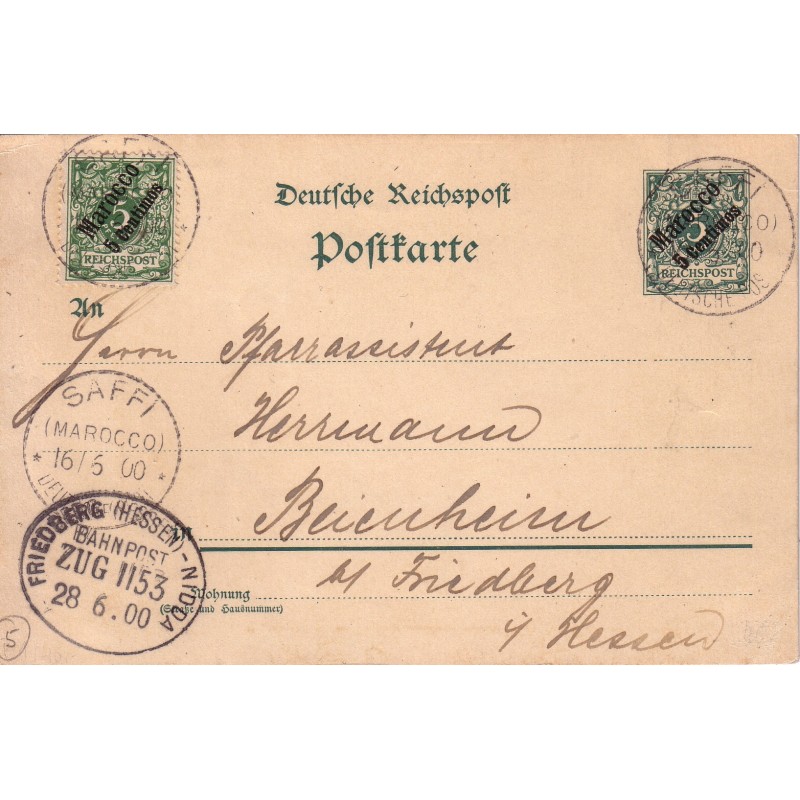 Deutsche Reichspost
Postkarte
Marocco
5 centimos
5
REICHSPOST
Marocco
5 centimos
5
REICHSPOST
An
Herrn Pfarrassistent
Herrmann
in Beienheim
b/ Friedberg
i/ Hessen
Wohnung
(Straße und Hausnummer)
SAFFI
(MAROCCO)
* 16/6 00 *
FRIEDBERG (HESSEN) - NIDDA
BAHNPOST
ZUG 1153
28 6.00
5